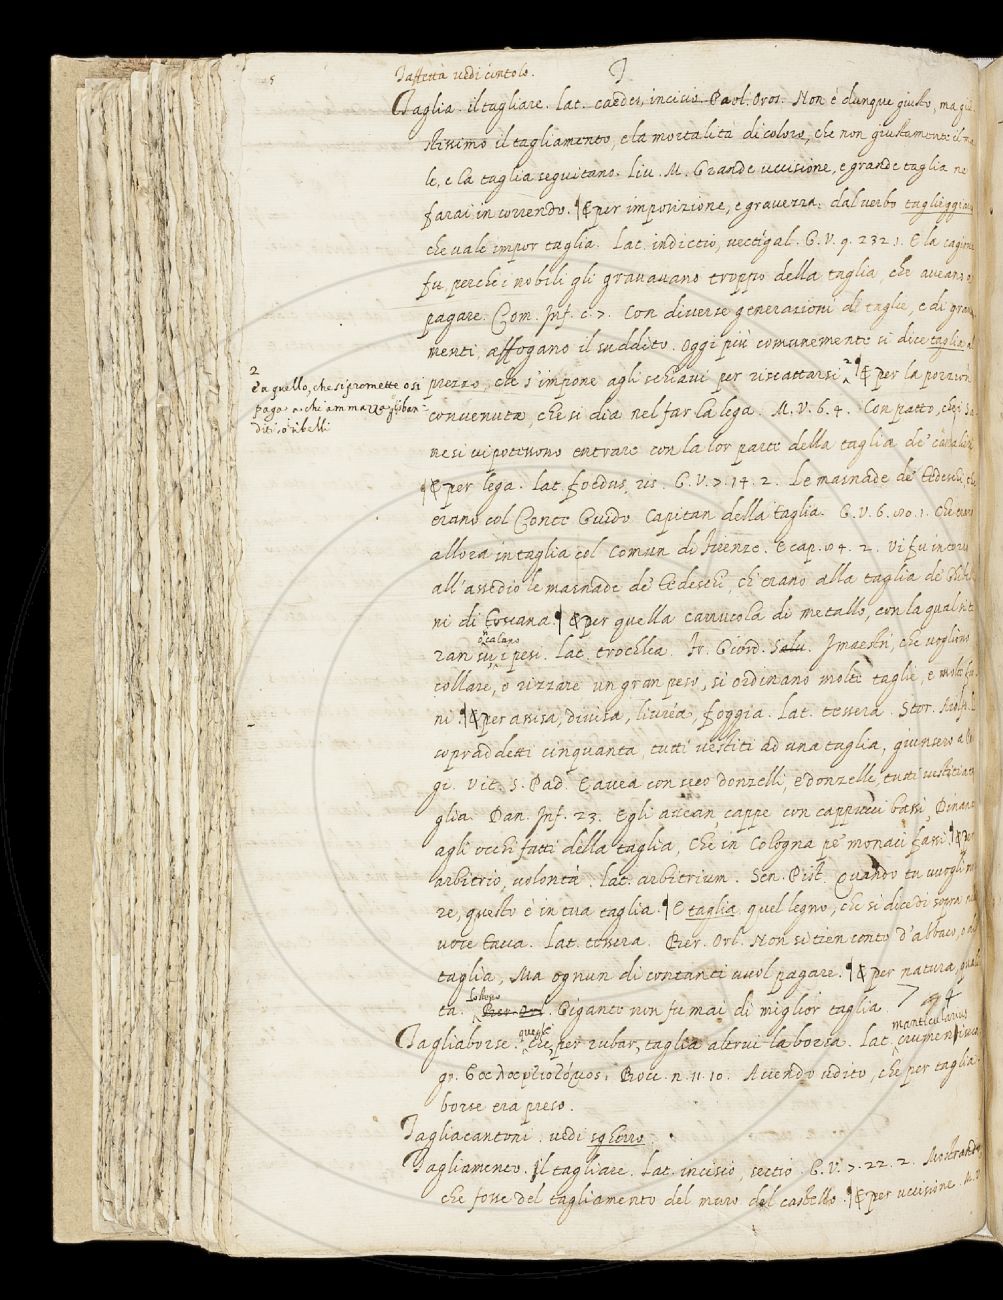 Taffettà vedi cintolo.
T
Taglia. il tagliare. Lat. caedes, incisio. Paol. Oros. Non è dunque giusto, ma giu
stissimo il tagliamento, e la mortalità di coloro, che non giustamente il ma
le, e la taglia seguitano. Liv. M. Grande uccisione, e grande taglia ne
farai in correndo. ¶ E per imposizione, e gravezza: dal verbo taglieggiare
che vale impor taglia. Lat. indictio, vectigal. G. V. 9. 232. 1. E la cagione
fu, perche i nobili gli gravavano troppo della taglia, che aveano a
pagare. Com. Inf. c. 7. Con diverse generazioni di taglie, e di grava
menti, affogano il suddito. Oggi più comunemente si dice taglia al
prezzo, che s'impone agli schiavi per riscattarsi. 2 ¶ E per la porzion
2
È a quello, che si promette o si
paga a chi ammazza sban-
diti, o ribelli
convenuta, che si dia nel far la lega. M. V. 6. 4. Con patto, che i Sa
nesi vi potessono entrare con la lor parte della taglia de' cavalieri
¶ E per lega. Lat. foedus, ris. G. V. 7. 14. 2. Le masnade de' Tedeschi, che
erano col Conte Guido Capitan della taglia. G. V. 6. 80. 1. Che erano
allora in taglia col Comun di Firenze. E cap. 84. 2. Vi fu in
all'assedio le masnade de' Tedeschi, ch'erano alla taglia de' Ghibelli
ni di Toscana. ¶ E per quella carrucola di metallo, con la qual si ti
o calano
ran su, i pesi. Lat. trochlea. Fr. Giord. Salu. I maestri, che vogliono
collare, o rizzare un gran peso, si ordinano molte taglie, e molte fu
ni. ¶ E per assisa, divisa, livrea, foggia. Lat. tessera. Stor. Aiolf. I
sopraddetti cinquanta, tutti vestiti ad una taglia, giunsero a
gi. Vit. S. Pad. E avea con seco donzelli, e donzelle, tutti vestiti a una ta
glia. Dan. Inf. 23. Egli avean cappe con cappucci bassi, Dinanzi
agli occhi fatti della taglia, Che in Cologna pe' monaci fassi. ¶ E per
arbitrio, volontà. Lat. arbitrium. Sen. Pist. Quando tu vuogli mo
re, questo è in tua taglia. ¶ E taglia quel legno, che si dice di sopra nella
voce tacca. Lat. tessera. Bern. Orl. Non si tien conto d'abbaco, o di
taglia, Ma ognun di contanti vuol pagare. ¶ E per natura, quali
tà. Bern. Orl. Gigante non fu mai di miglior taglia.
Tagliaborse. quegli che, per rubar, taglia altrui la borsa. Lat. manticularius crumeniseca
gr. βαλαντιοτόμος. Bocc. n. 11. 10. Avendo udito, che per taglia
borse era preso.
Tagliacantoni. vedi sgherro.
Tagliamento. Il tagliare. Lat. incisio, sectio. G. V. 7. 22. 2. Mostrando,
che fosse del tagliamento del muro del castello. ¶ E per uccisione. M. V.